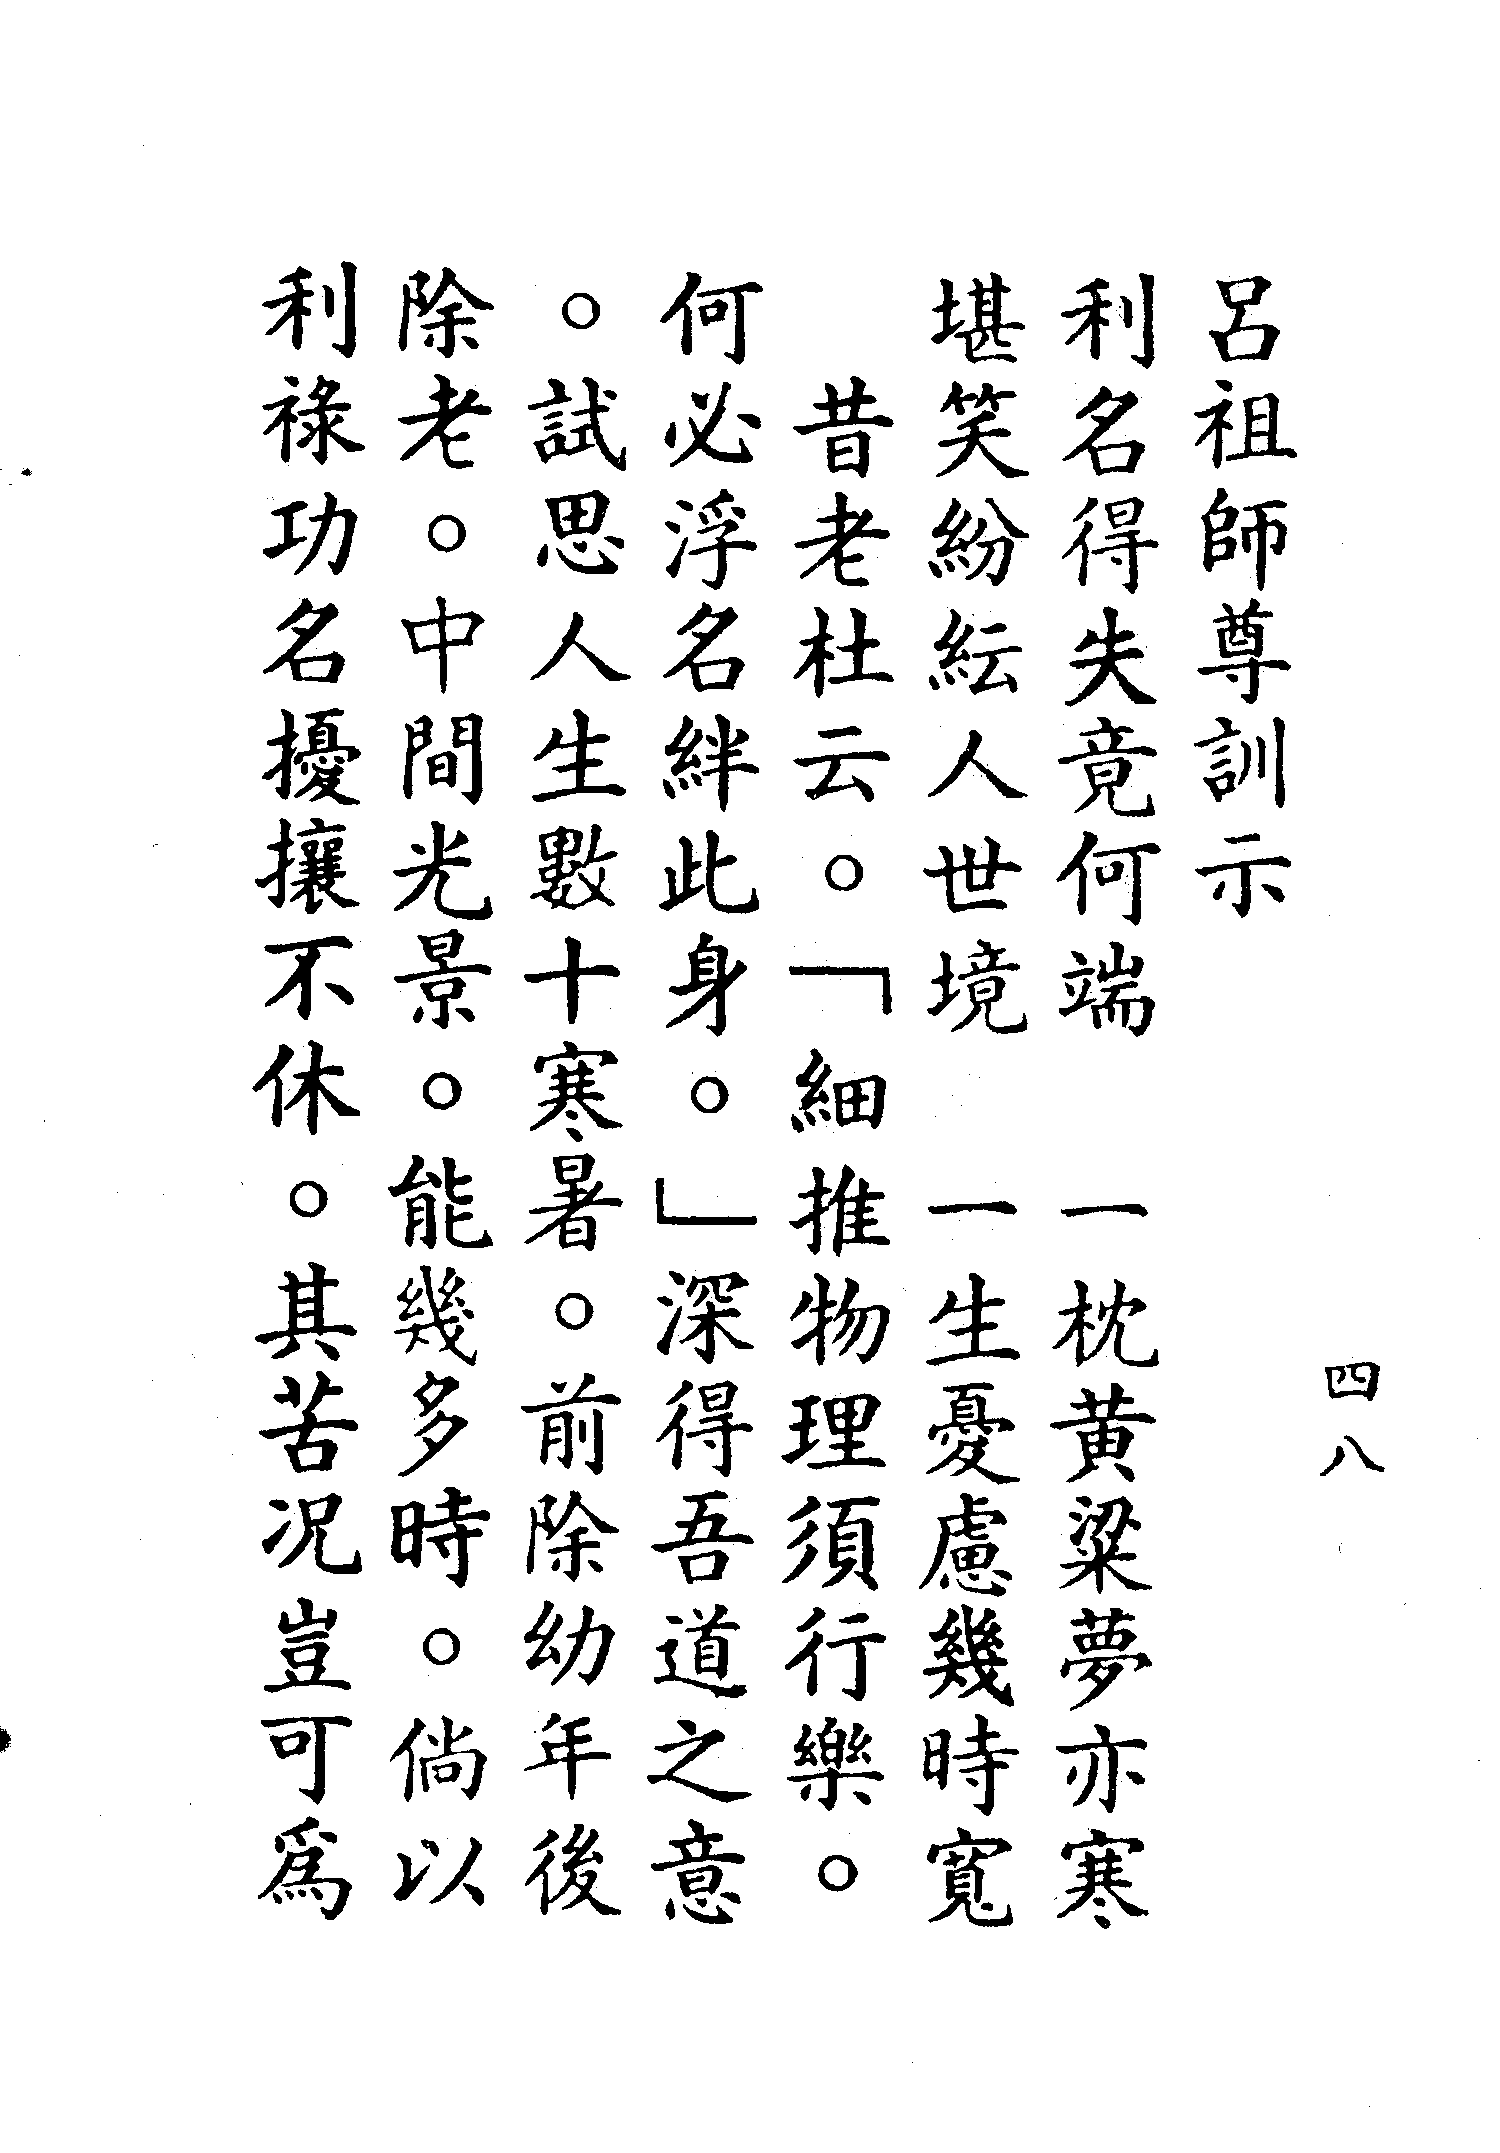 四八
呂祖師尊訓示
利名得失竟何端　一枕黃粱夢亦寒
堪笑紛紜人世境　一生憂慮幾時寬
昔老杜云。「細推物理須行樂。
何必浮名絆此身。」深得吾道之意
。試思人生數十寒暑。前除幼年後
除老。中間光景。能幾多時。倘以
利祿功名擾攘不休。其苦况豈可爲